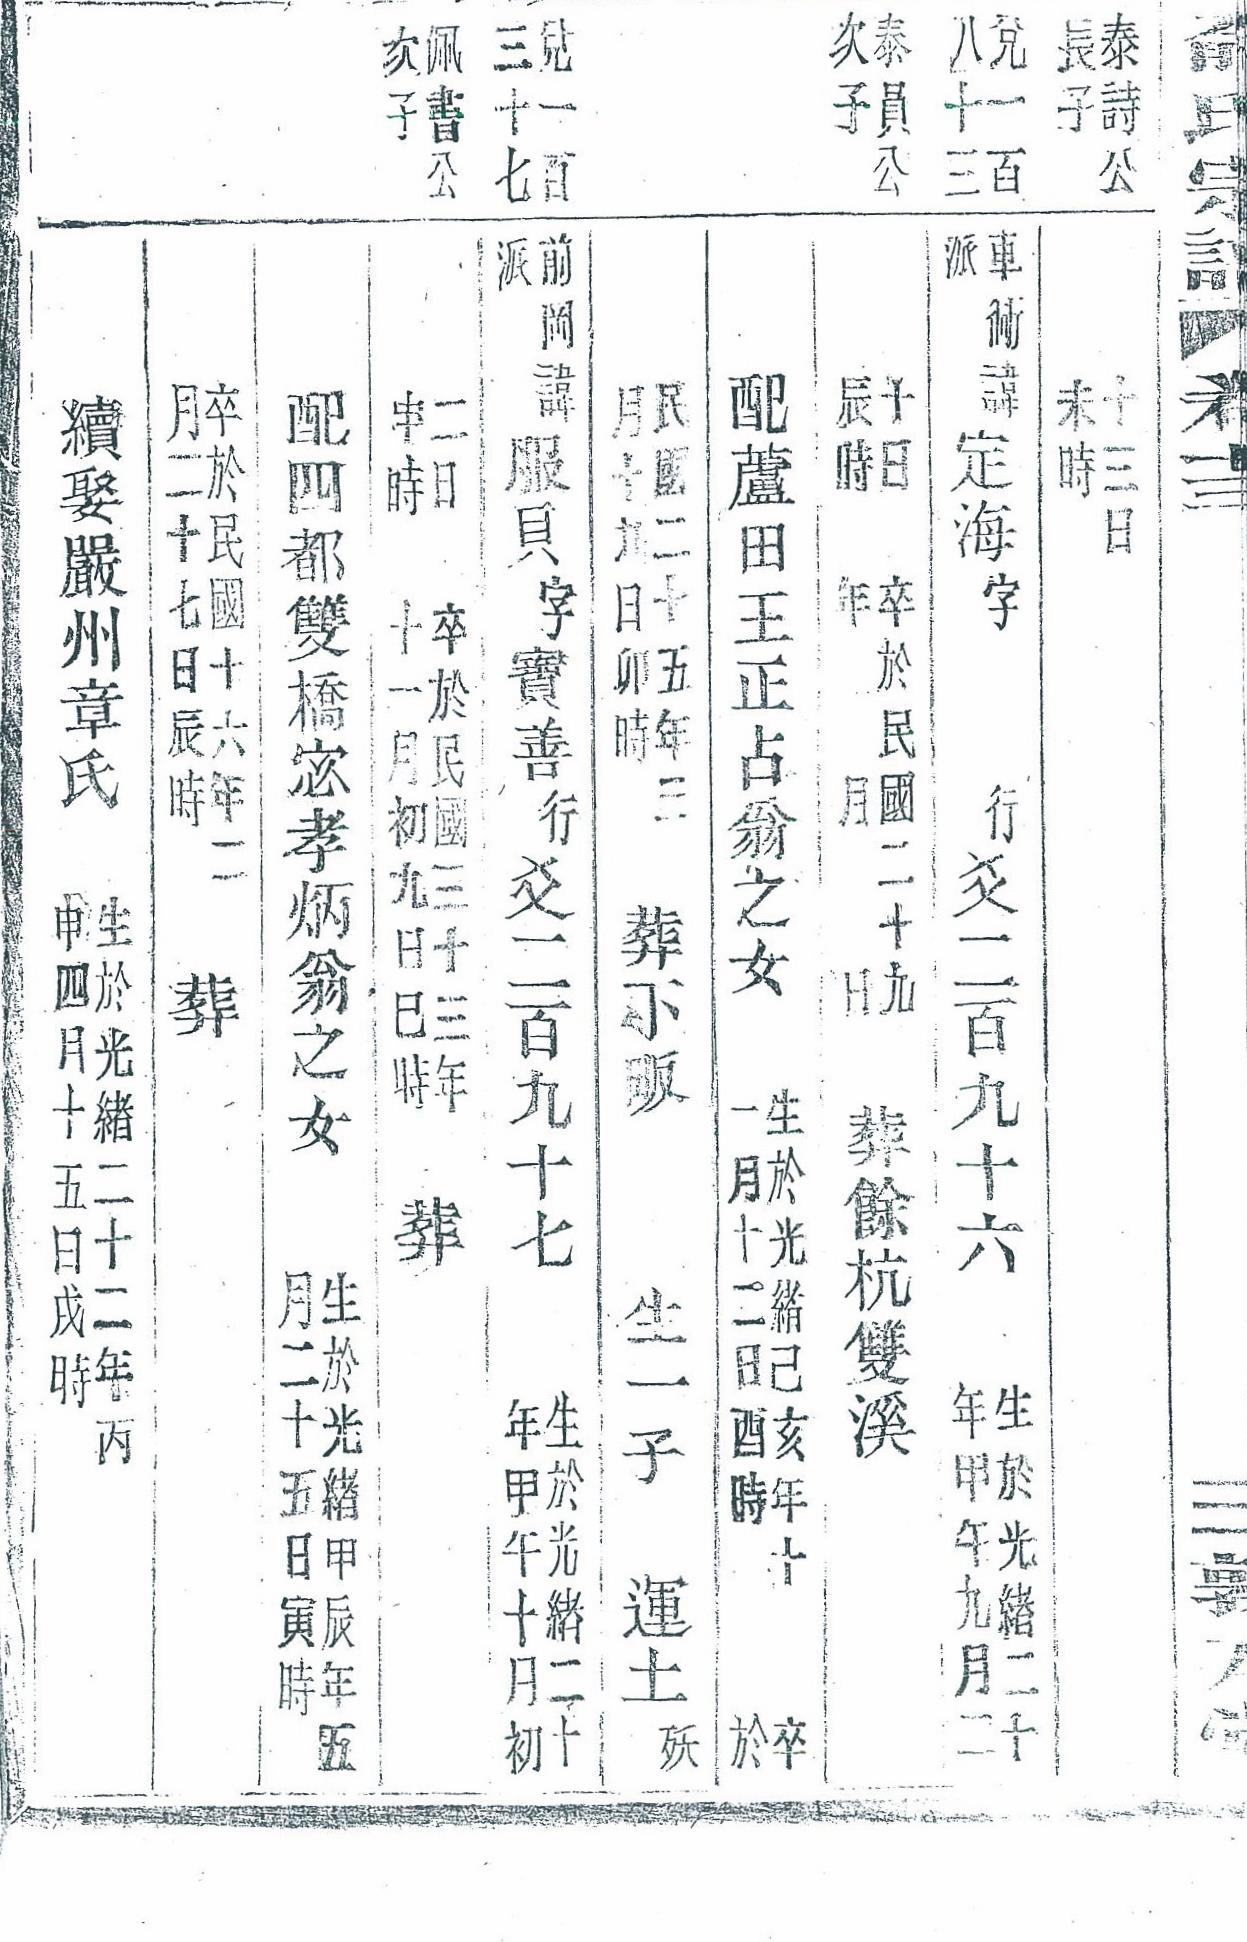 氏宗譜 卷三
泰詩公
長子
十三日
未時
兌一百
八十三
車衕諱定海字 行爻二百九十六 生於光緒二十
派 年甲午九月二
泰員公
次子
十日 卒於民國二十九
辰時 年 月 日 葬餘杭雙溪
配蘆田王正占翁之女 生於光緒己亥年十 卒
一月十二日酉時 於
民國二十五年三
月十九日卯時 葬下畈 生一子 運土 殀
兌一百
三十七
前岡諱服貝字寶善行爻二百九十七 生於光緒二十
派 年甲午十月初
佩書公
次子
二日 卒於民國三十三年
申時 十一月初九日巳時 葬
配四都雙橋宓孝炳翁之女 生於光緒甲辰年五
月二十五日寅時
卒於民國十六年二
月二十七日辰時 葬
續娶嚴州章氏 生於光緒二十二年丙
申四月十五日戌時